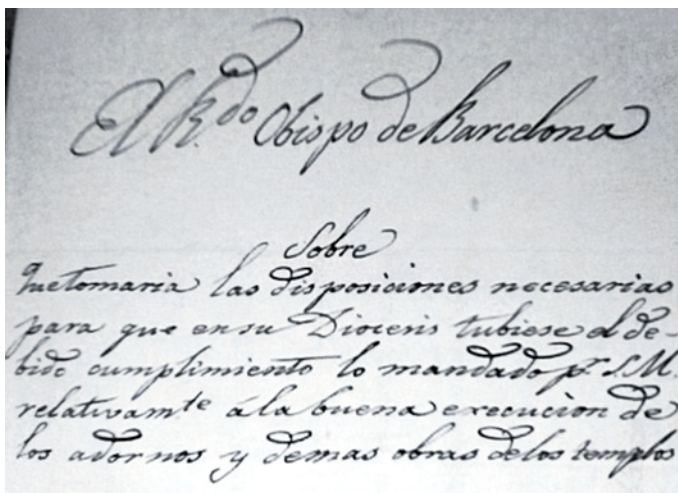 El R.do Obispo de Barcelona
Sobre
que tomaria las disposiciones necesarias
para que en su Diocesis tubiese el de-
bido cumplimiento lo mandado pr. S.M.
relativamte á la buena execucion de
los adornos y demas obras de los templos